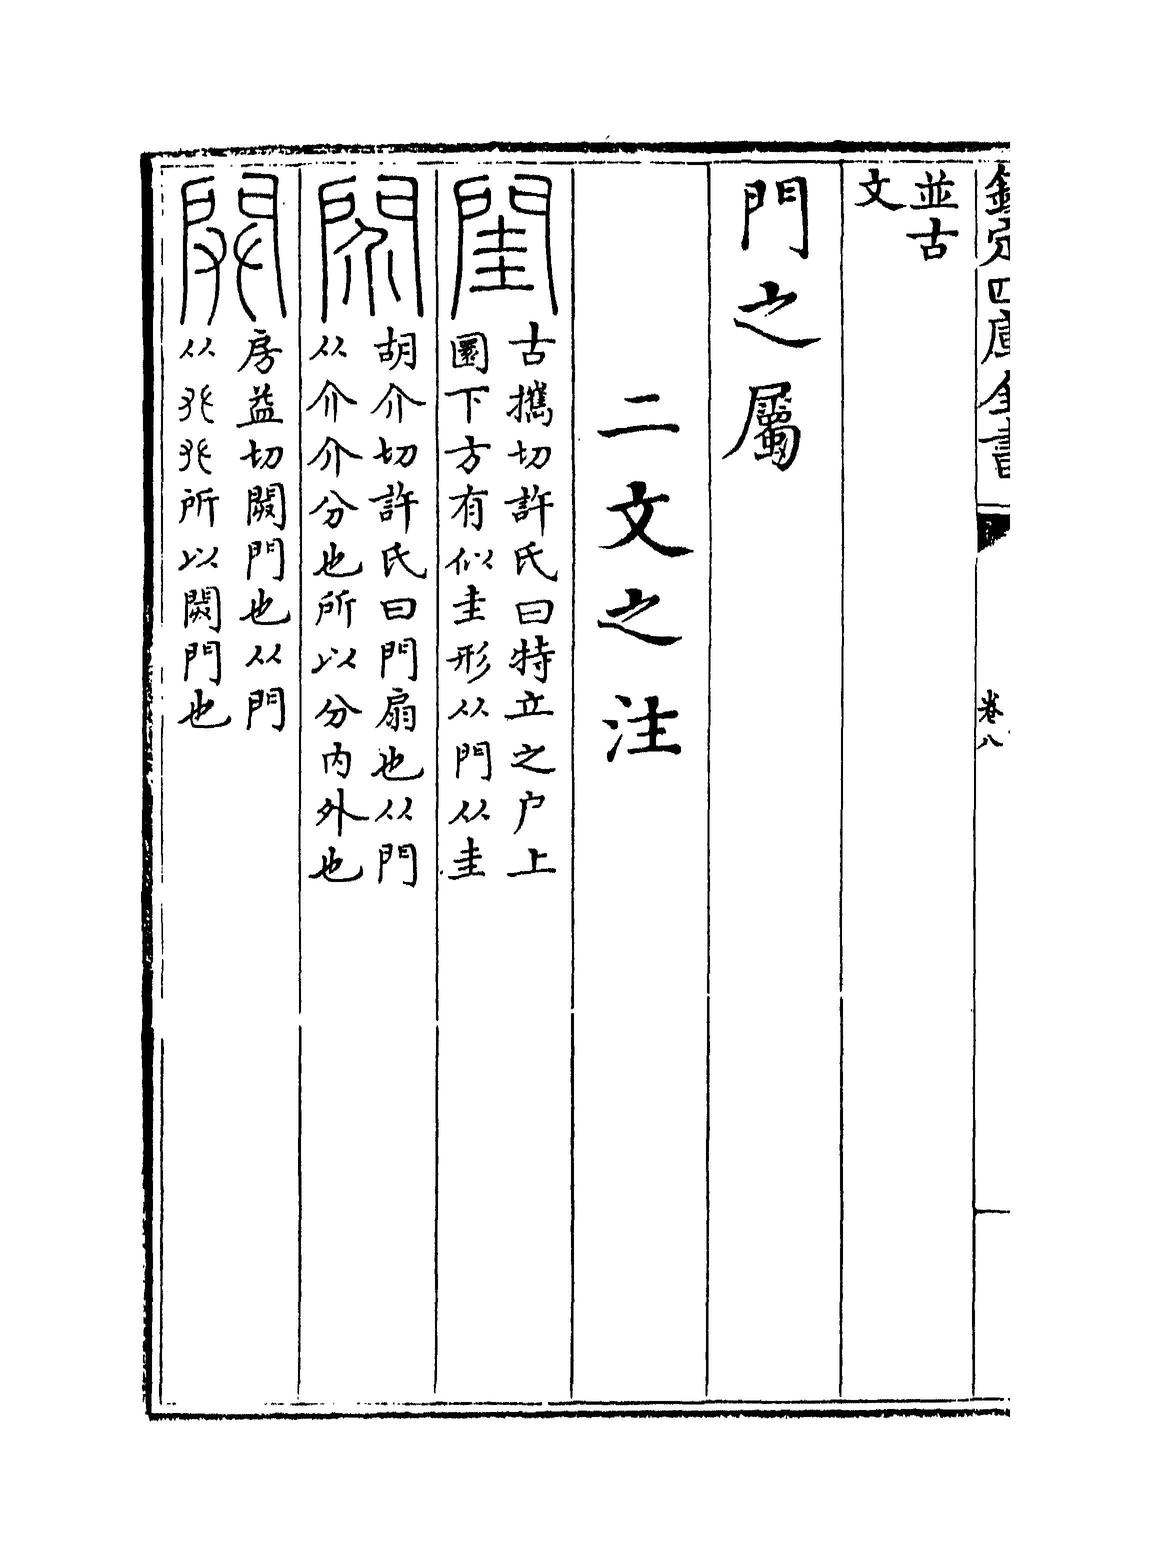 欽定四庫全書
卷八
並古
文
門之屬
二文之注
閨
古攜切許氏曰特立之户上
圜下方有似圭形从門从圭
䦏
胡介切許氏曰門扇也从門
从介介分也所以分内外也
房益切闢門也从門
从𠬜𠬜所以闢門也